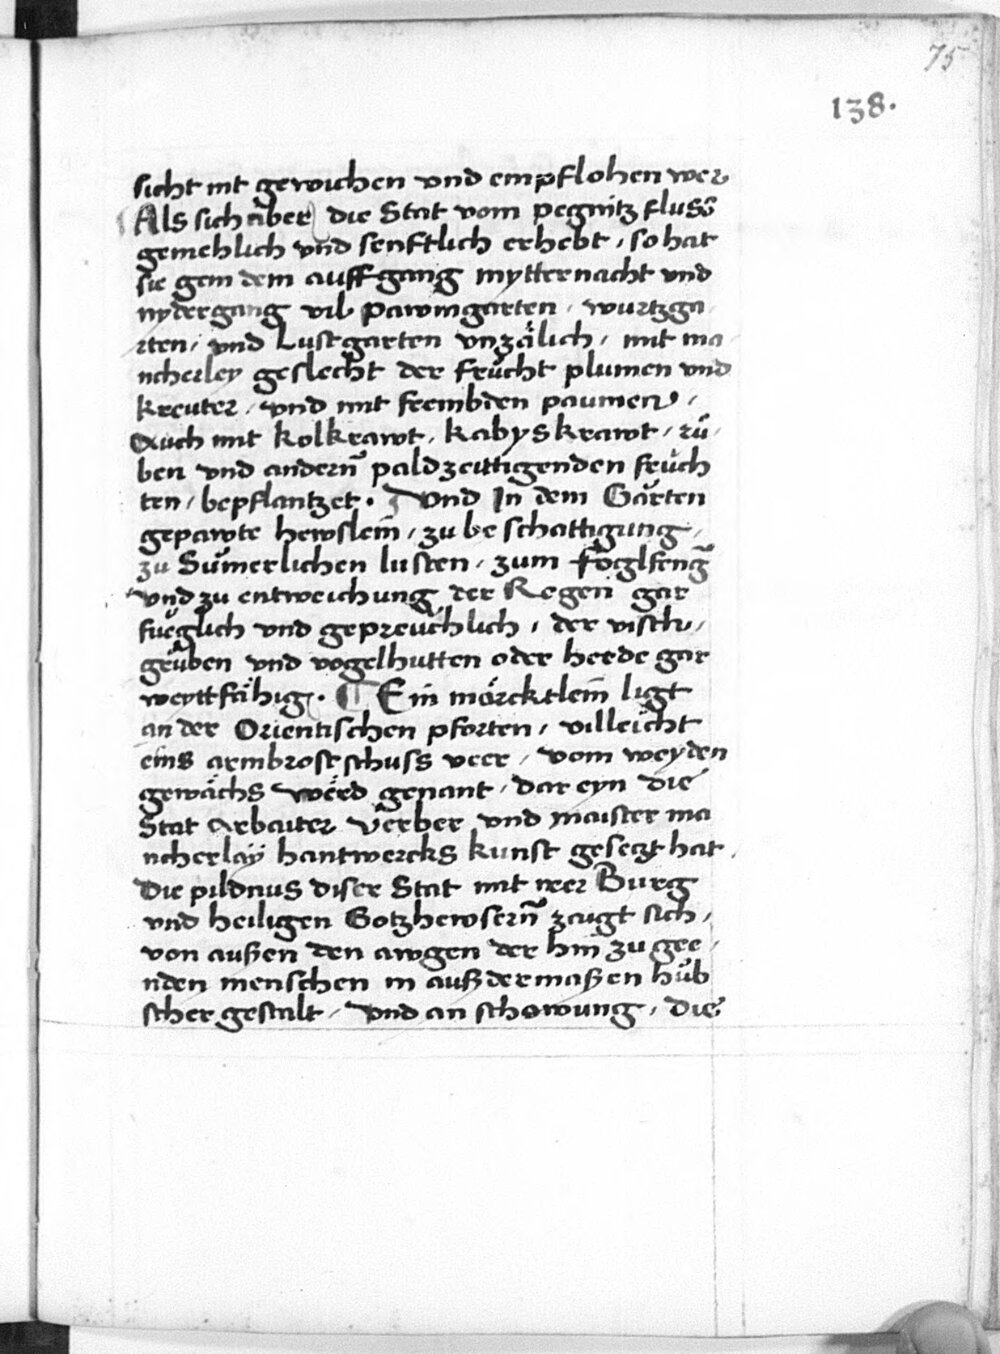 75
138.
sicht nit gewichen vnd empflohen wer
Als sich aber die Stat vom pegnitz fluss
gemehlich vnd senftlich erhebt, so hat
sie gem dem auffgang mytternacht vnd
nydergang vil pawmgarten, wurtzga,
rten, vnd Lustgarten vnzälich, mit ma,
ncherley geslecht der frücht plumen vnd
kreuter, vnd mit frembden paumen,
Auch mit kolkrawt, kabyskrawt, rů,
ben vnd andern̄ paldzeittigenden früch
ten, bepflantzet. Vnd In dem Gärten
gepawte hewslein, zu beschattigung,
zu Sum̄erlichen lusten, zum foglfeng
vnd zu entweichung der Regen gar
fueglich vnd gepreuchlich, der visch,
grůben vnd vogelhutten oder herde gar
weyttfähig. ¶ Ein märcktlein ligt
an der Orientischen pforten, villeicht
eins armbrostschuss veer, vom weyden
gewächs wërd genant, dar eyn die
Stat Arbaiter Verber vnd maister ma
ncherlaÿ hantwercks kunst gesetzt hat.
Die pildnus diser Stat mit irer Burg
vnd heiligen Gotzhewsern̄ zaigt sich,
von außen den awgen der hin zu gee,
nden menschen in außdermaßen hůb
scher gestalt, vnd an schowung, die